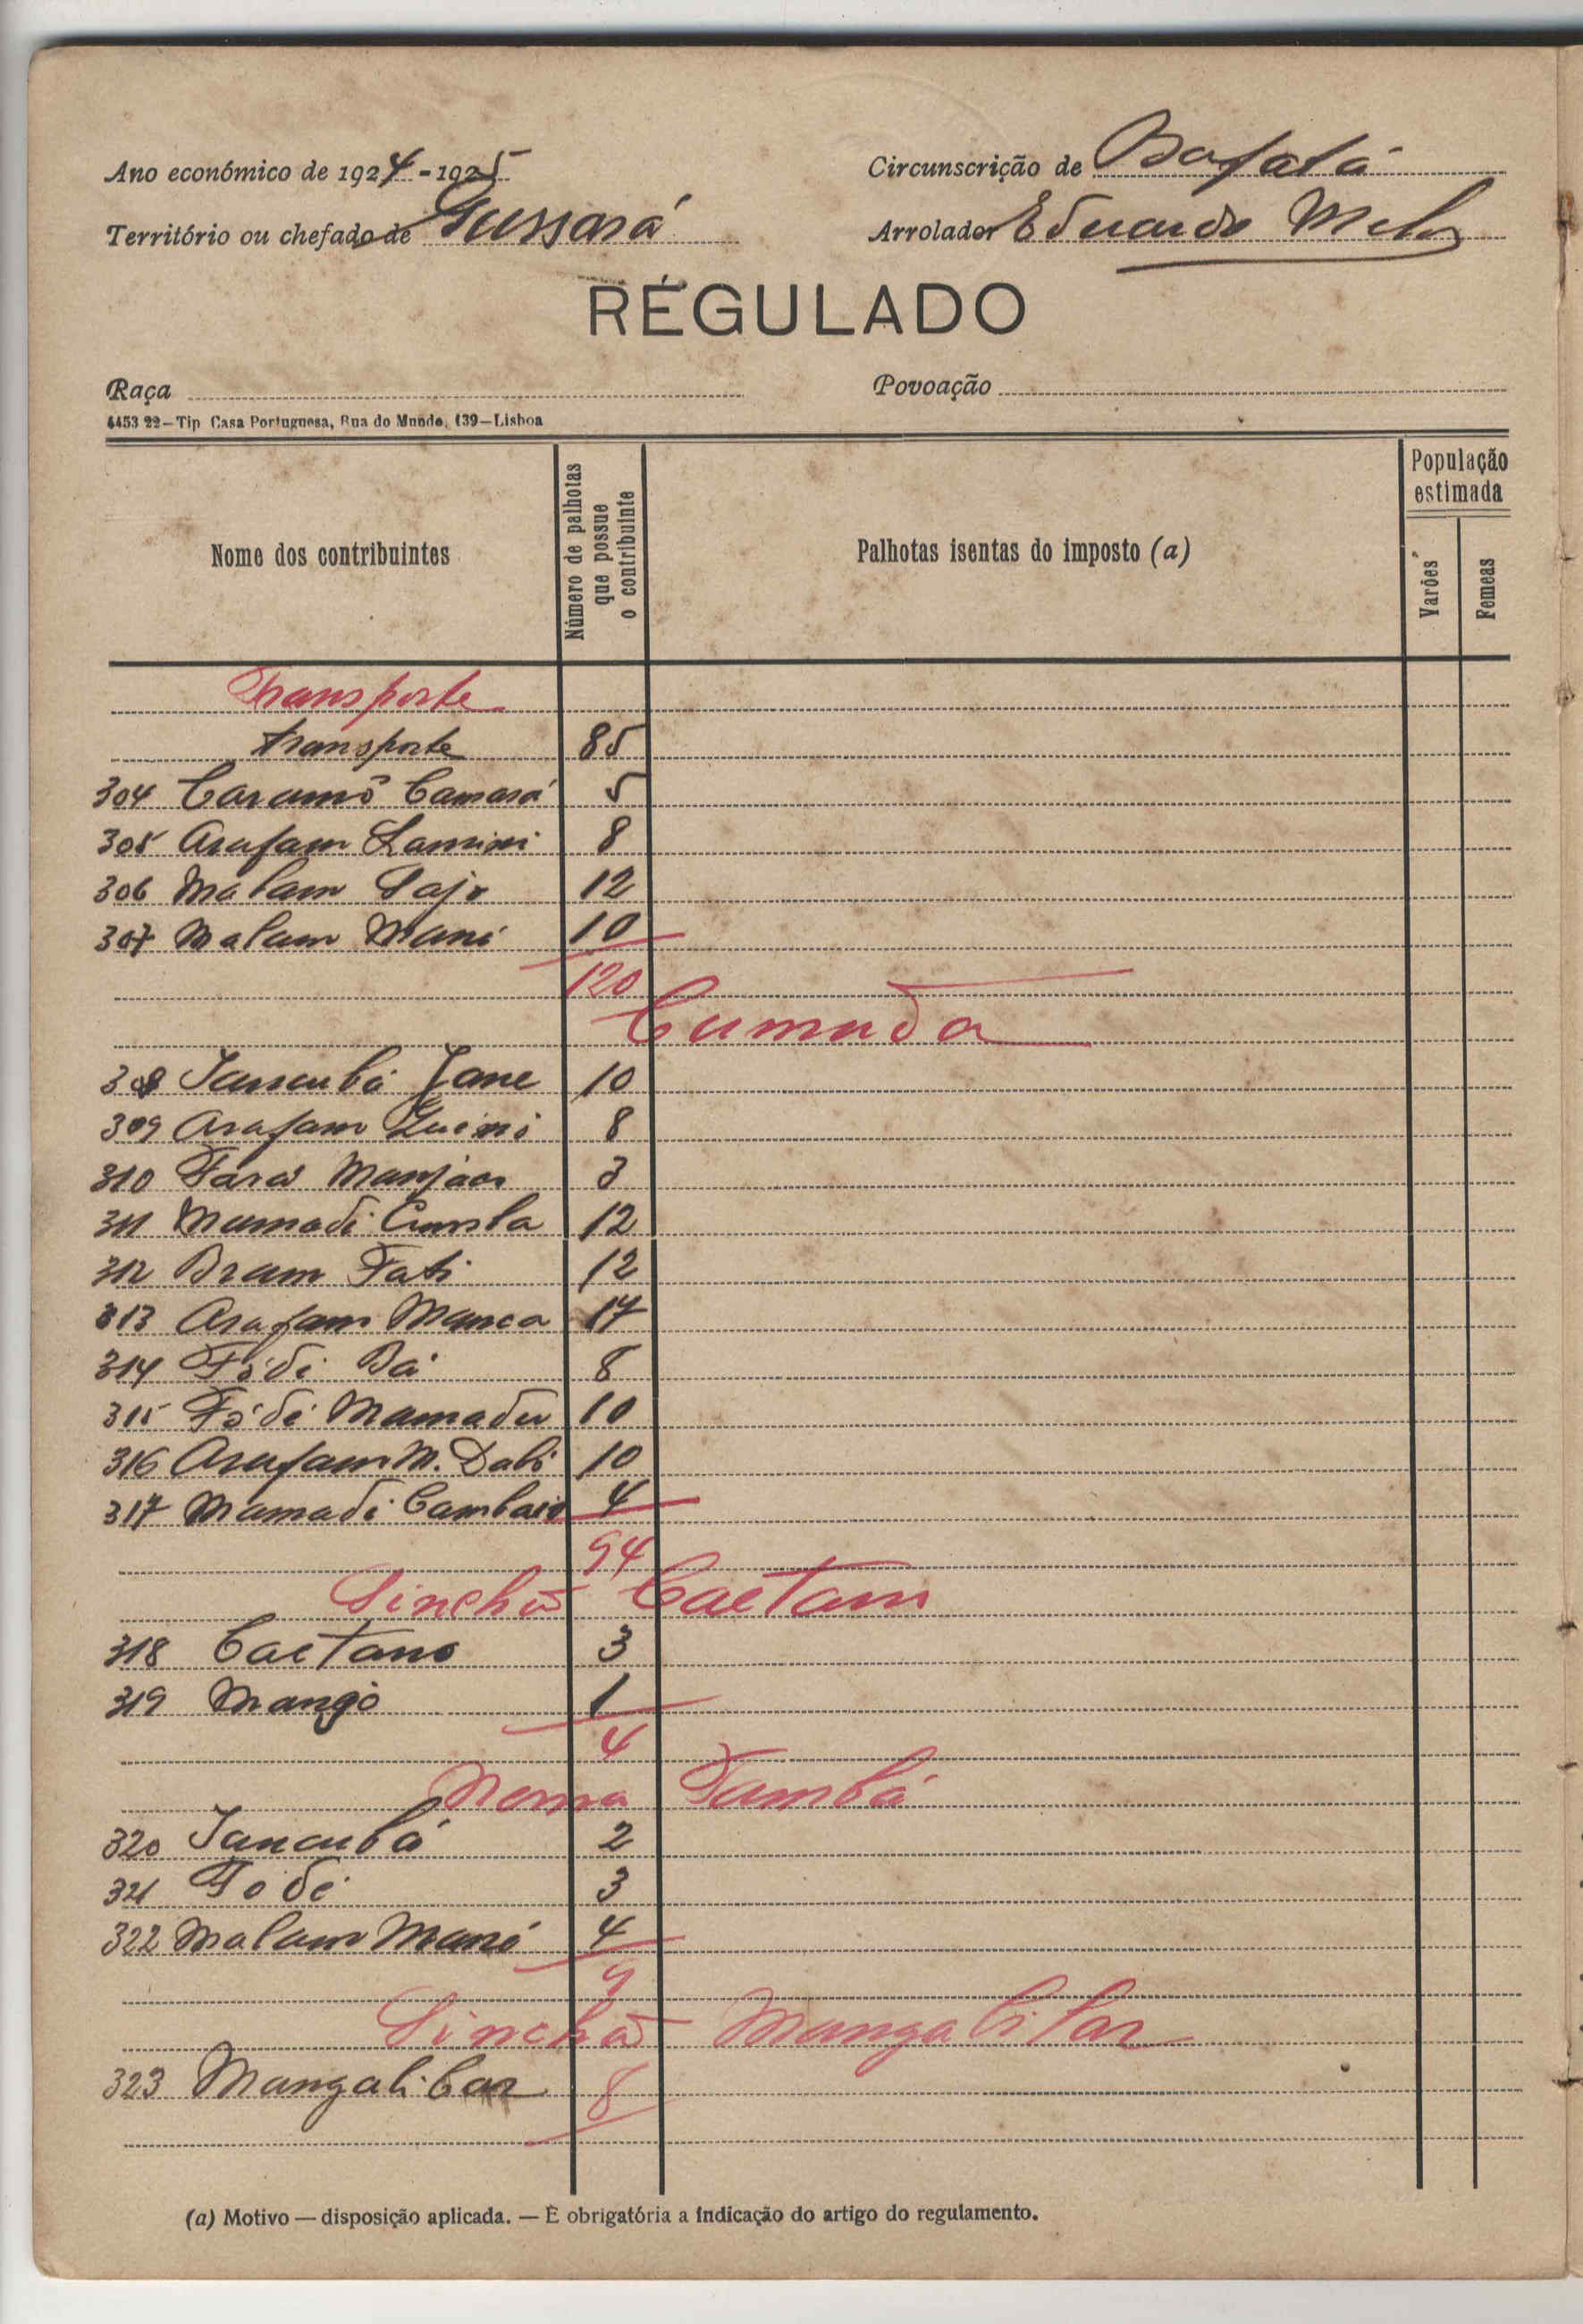 Ano económico de 1924-1925
Circunscrição de Bafatá
Território ou chefado de Gussará
Arrolador Eduardo Melo
RÉGULADO
Raça
Povoação
4453 22—Tip Casa Portuguesa, Rua do Mundo, 139—Lisboa
Nome dos contribuintes
Número de palhotas que possue o contribuinte
Palhotas isentas do imposto (a)
População estimada
Varões
Femeas
Transporte
Transporte 85
304 Caramó Camará 5
305 Arafam Lamini 8
306 Malam Sajo 12
307 Malam Mané 10
120
Cumuda
308 Jancubá Jane 10
309 Arafam 8
310 Fara Manjaco 3
311 Mamadi 12
312 Bram Fati 12
313 Arafam Manca 17
314 Fódi Bá 8
315 Fódé Mamadu 10
316 Arafam M. Dabó 10
317 Mamadi Cambaio 4
94
Sinchã Caetano
318 Caetano 3
319 Mangó 1
4
Nema Tambá
320 Jancubá 2
321 Fodé 3
322 Malam Mané 4
9
Sinchã Mangalibar
323 Mangalibar 8
(a) Motivo — disposição aplicada. — É obrigatória a indicação do artigo do regulamento.